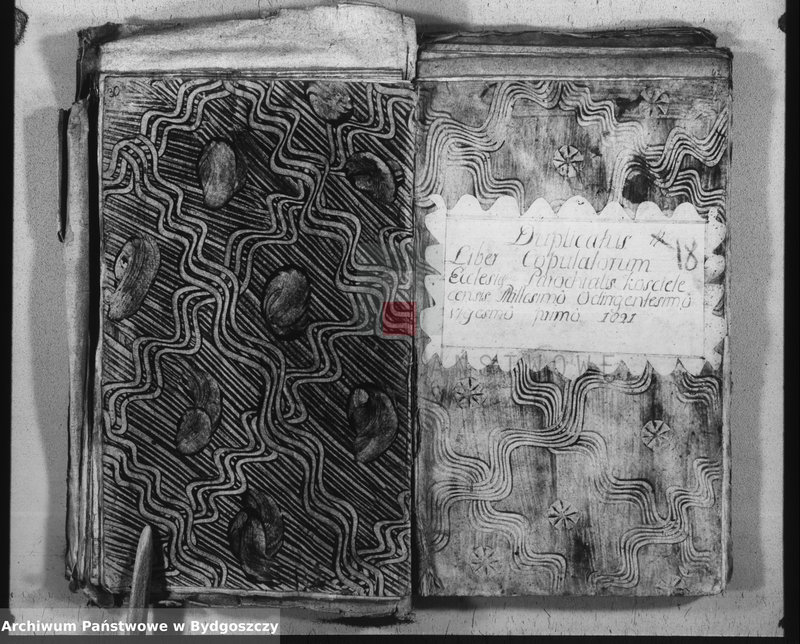 Duplicatus
Liber Copulatorum # 18
Ecclesiæ Parochialis Kosciele
censis Millesimo Octingentesimo
vigesimo primo 1821
Archiwum Państwowe w Bydgoszczy